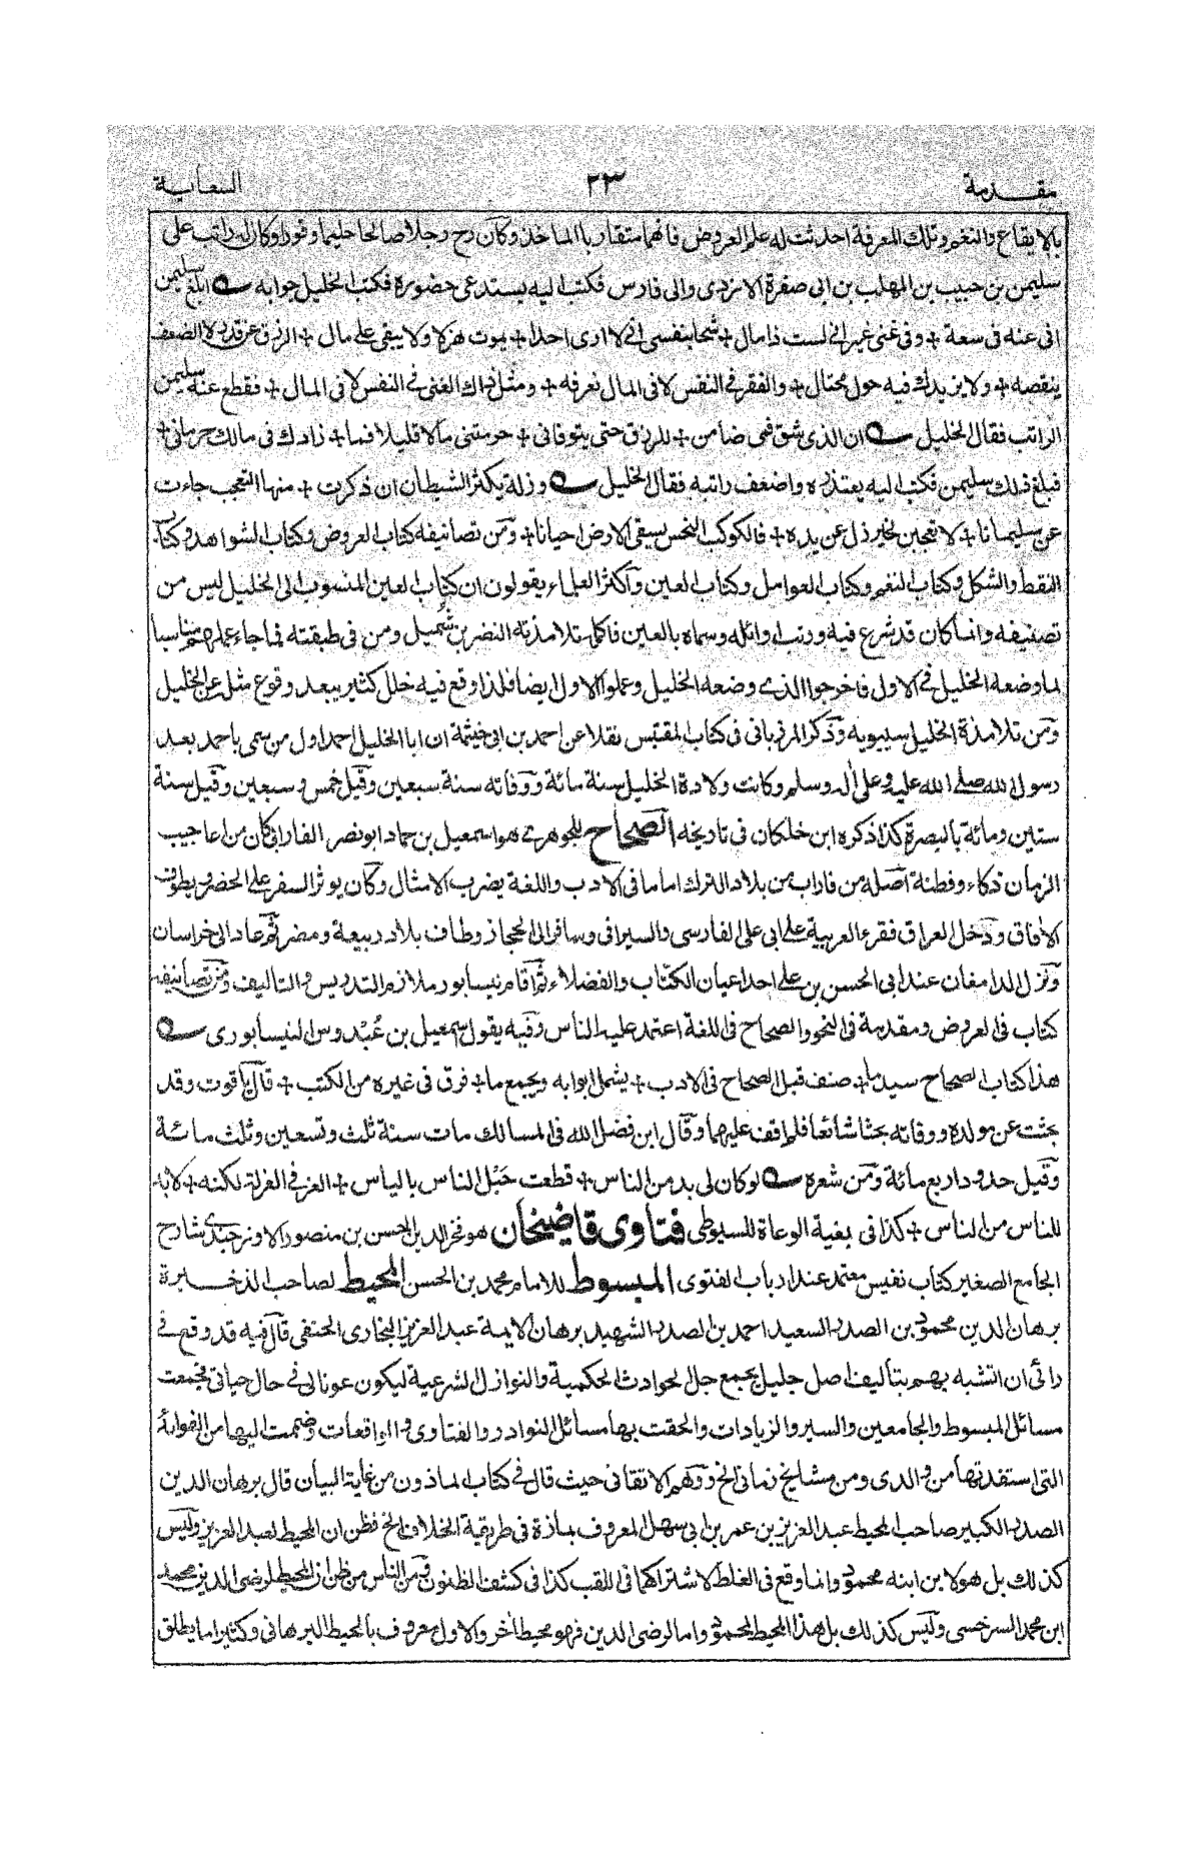 مقدمة ٢٣ السعاية
بالايقاع والنغم وتلك المعرفة احدثت له علم العروض فانهما متقاربا الماخذ وكان رح رجلا صالحا حليما وقورا وكان له راتب على
سليمن بن حبيب بن المهلب بن ابى صفرة الازدى والى فارس فكتب اليه يستدعى حضوره فكتب الخليل جوابه ابلغ سليمن
انى عنه فى سعة + وفى غنى غير انى لست ذا مال + شحا بنفسى انى لا ارى احدا + يموت هزلا ولا يبقى على مال + الرزق عن قدر لا الضعف
ينقصه + ولا يزيدك فيه حول محتال + والفقر فى النفس لا فى المال نعرفه + ومثل ذاك الغنى فى النفس لا فى المال + فقطع عنه سليمن
الراتب فقال الخليل ان الذى شق فمى ضامن + للرزق حتى يتوفانى + حرمتنى مالا قليلا فما + زادك فى مالك حرمانى +
فبلغ ذلك سليمن فكتب اليه يعتذره واضعف راتبه فقال الخليل وزلة يكثر الشيطان ان ذكرت + منها التعجب جاءت
عن سليمانا + لا تعجبن لخير زل عن يده + فالكوكب النحس يسقى الارض احيانا + ومن تصانيفه كتاب العروض وكتاب الشواهد وكتاب
النقط والشكل وكتاب النغم وكتاب العوامل وكتاب العين واكثر العلماء يقولون ان كتاب العين المنسوب الى الخليل ليس من
تصنيفه وانما كان قد شرع فيه ورتب اوائله وسماه بالعين فاكمله تلامذته النضر بن شميل ومن فى طبقته فما جاء عملهم مناسبا
لما وضعه الخليل فى الاول فاخرجوا الذى وضعه الخليل وعملوا الاول ايضا فلذا وقع فيه خلل كثير يبعد وقوع مثله عن الخليل
ومن تلامذة الخليل سيبويه وذكر المرزبانى فى كتاب المقتبس نقلا عن احمد بن ابى خيثمة ان ابا الخليل احمد اول من سمى باحمد بعد
رسول الله صلى الله عليه وعلى اله وسلم وكانت ولادة الخليل سنة مائة ووفاته سنة سبعين وقيل خمس وسبعين وقيل سنة
ستين ومائة بالبصرة كذا ذكره ابن خلكان فى تاريخه الصحاح للجوهرى هو اسمعيل بن حماد ابو نصر الفارابى كان من اعاجيب
الزمان ذكاء وفطنة اصله من فاراب من بلاد الترك اماما فى الادب واللغة يضرب الامثال وكان يوثر السفر على الحضر ويطوف
الافاق ودخل العراق فقرء العربية على ابى على الفارسى والسيرافى وسافر الى الحجاز وطاف بلاد ربيعة ومضر ثم عاد الى خراسان
ونزل الدامغان عند ابى الحسن بن على احد اعيان الكتاب والفضلاء ثم اقام نيسابور ملازم التدريس والتاليف ومن تصانيفه
كتاب فى العروض ومقدمة فى النحو والصحاح فى اللغة اعتمد عليه الناس وفيه يقول اسمعيل بن عبدوس النيسابورى
هذا كتاب الصحاح سيد ما + صنف قبل الصحاح فى الادب + يشمل ابوابه ويجمع ما + فرق فى غيره من الكتب + قال ياقوت وقد
بحثت عن مولده ووفاته بحثا شائعا فلم اقف عليهما وقال ابن فضل الله فى المسالك مات سنة ثلث وتسعين وثلث مائة
وقيل حدود اربع مائة ومن شعره لو كان لى بد من الناس + قطعت حبل الناس بالياس + العز فى العزلة لكنه + لا بد
للناس من الناس + كذا فى بغية الوعاة للسيوطى فتاوى قاضيخان هو فخر الدين الحسن بن منصور الاوزجندى شارح
الجامع الصغير كتاب نفيس معتمد عند ارباب الفتوى المبسوط للامام محمد بن الحسن المحيط لصاحب الذخيرة
برهان الدين محمود بن الصدر السعيد احمد بن الصدر الشهيد برهان الايمة عبد العزيز البخارى الحنفى قال فيه قد وقع فى
رائى ان اتشبه بهم بتاليف اصل جليل يجمع جل الحوادث الحكمية والنوازل الشرعية ليكون عونا لى فى حال حياتى فجمعت
مسائل المبسوط والجامعين والسير والزيادات والحقت بها مسائل النوادر والفتاوى والواقعات وضممت اليها من الفوائد
التى استفدتها من والدى ومن مشايخ زمانى الخ ووهم الاتقانى حيث قال فى كتاب الماذون من غاية البيان قال برهان الدين
الصدر الكبير صاحب المحيط عبد العزيز بن عمر بن ابى سهل المعروف بمازة فى طريقية الخلاف الخ فظن ان المحيط لعبد العزيز وليس
كذلك بل هو لابن ابنه محمود وانما وقع فى الغلط لاشتراكهما فى اللقب كذا فى كشف الظنون ومن الناس من ظن ان المحيط لرضى الدين محمد
ابن محمد السرخسى وليس كذلك بل هذا المحيط لمحمود واما لرضى الدين فهو محيط اخر والاول معروف بالمحيط البرهانى وكثيرا ما يطلق